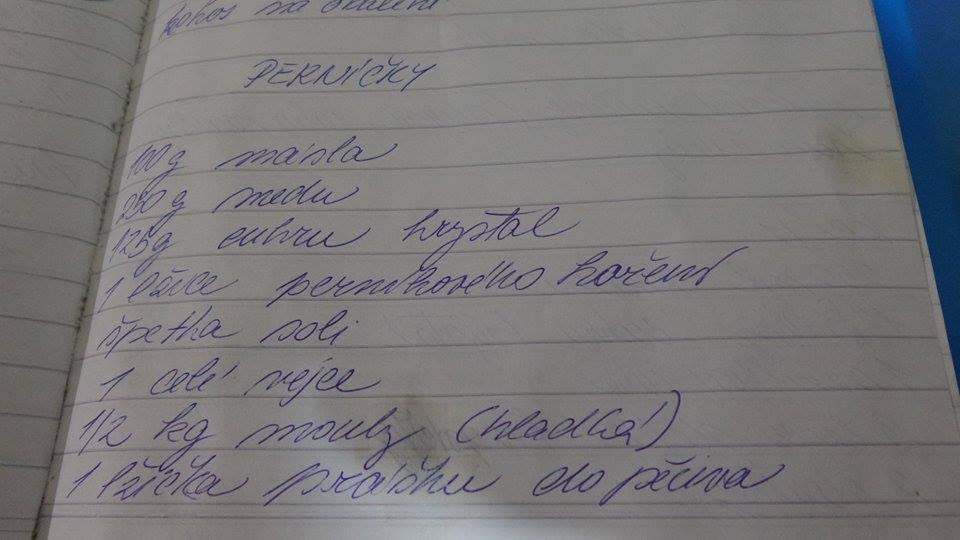 kokos na obalení
PERNÍČKY
100 g másla
250 g medu
125 g cukru krystal
1 lžíce perníkového koření
špetka soli
1 celé vejce
1/2 kg mouky (hladká)
1 lžička prášku do pečiva